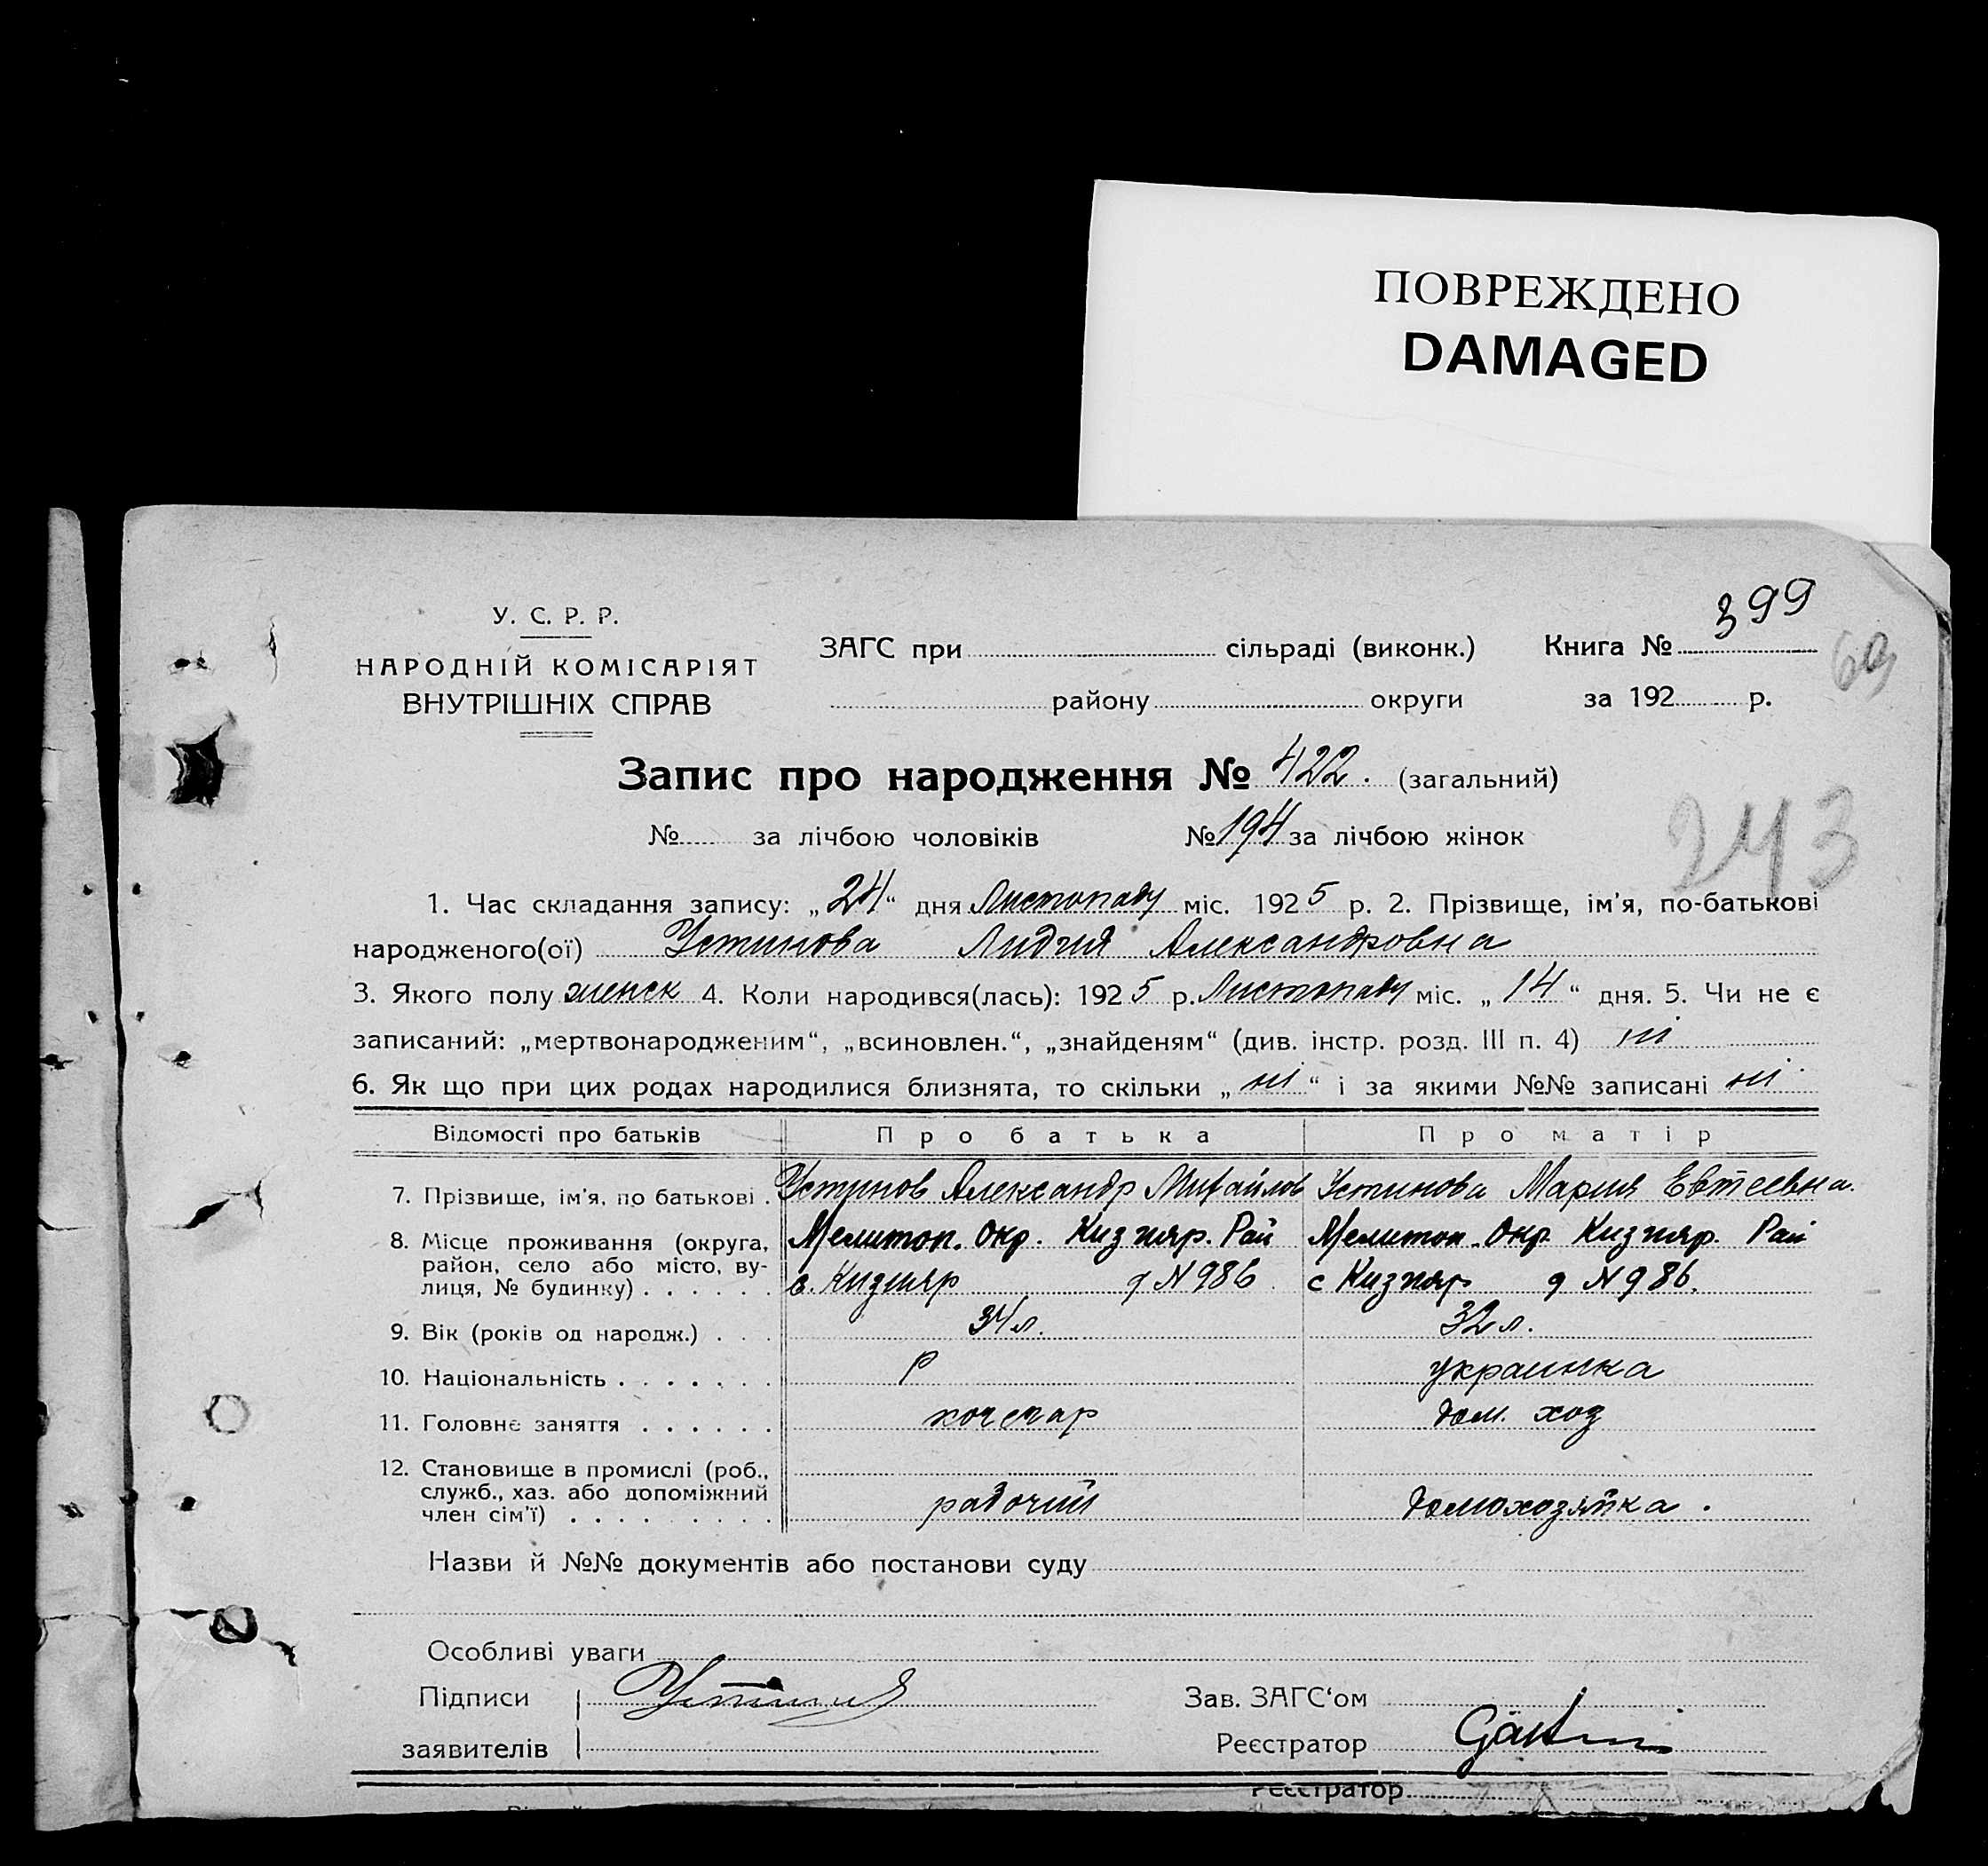 ПОВРЕЖДЕНО
DAMAGED
399
69
У. С. Р. Р.
НАРОДНІЙ КОМІСАРІЯТ
ВНУТРІШНІХ СПРАВ
ЗАГС при сільраді (виконк.) Книга №
району округи за 192 р.
Запис про народження № 422. (загальний)
№ за лічбою чоловіків № 194 за лічбою жінок
243
1. Час складання запису: „24“ дня Листопаду міс. 1925 р. 2. Прізвище, ім'я, по-батькові
народженого(ої) Устинова Лидия Александровна
3. Якого полу женск 4. Коли народився(лась): 1925 р. Листопаду міс. „14“ дня. 5. Чи не є
записаний: „мертвонародженим“, „всиновлен.“, „знайденям“ (див. інстр. розд. III п. 4) ні
6. Як що при цих родах народилися близнята, то скільки „ні“ і за якими №№ записані ні
Відомості про батьків Про батька Про матір
7. Прізвище, ім'я, по батькові . Устинов Александр Михайлов Устинова Мария Евтеевна.
8. Місце проживання (округа, Мелитоп. Окр. Кизияр. Рай Мелитоп. Окр. Кизияр. Рай
район, село або місто, ву-
лиця, № будинку) . . . . . . с. Кизияр д N 986 с Кизияр д N 986.
9. Вік (років од народж.) . . . 34 л. 32 л.
10. Національність . . . . . . . Р украинка
11. Головнє заняття . . . . . . кочегар дом. хоз
12. Становище в промислі (роб.,
служб., хаз. або допоміжний
член сім'ї) . . . . . . . . . рабочий домохозяйка .
Назви й №№ документів або постанови суду
Особливі уваги
Підписи Устинов Зав. ЗАГС‘ом
заявителів Реєстратор
Реєстратор